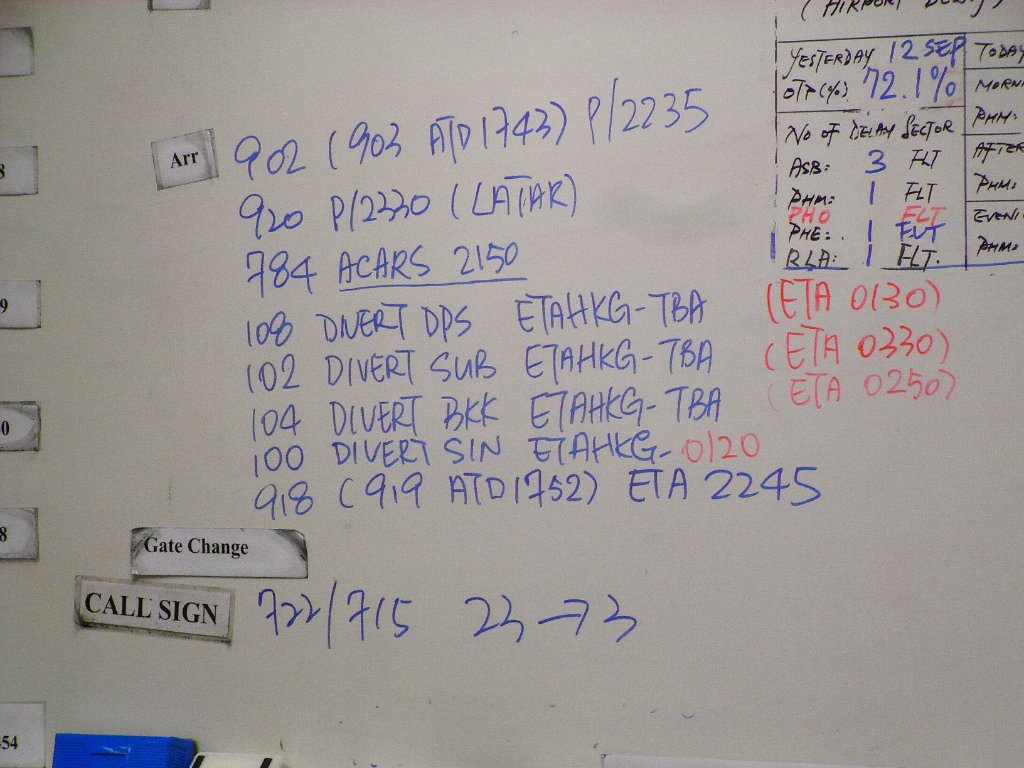 (AIRPORT
YESTERDAY 12 SEP
OTP(%) 72.1%
NO OF DELAY SECTOR
ASB: 3 FLT
PHM: 1 FLT
PHO FLT
PHE: 1 FLT
RLA: 1 FLT.
TODAY
MORNI
PHM:
AFTER
PHM:
EVENI
PHM:
Arr 902 (903 ATD 1743) P/2235
920 P/2330 (LATAR)
784 ACARS 2150
108 DIVERT DPS ETAHKG-TBA (ETA 0130)
102 DIVERT SUB ETAHKG-TBA (ETA 0330)
104 DIVERT BKK ETAHKG-TBA (ETA 0250)
100 DIVERT SIN ETAHKG-0120
918 (919 ATD 1752) ETA 2245
Gate Change
CALL SIGN 722/715 23→3
8
9
0
8
54